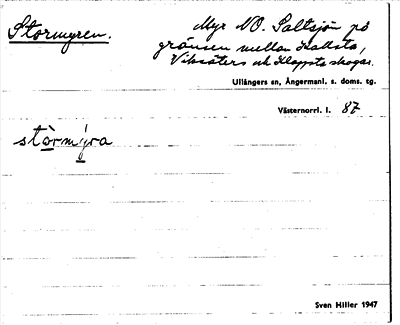 Stormyren.
Myr NO. Saltsjön på
gränsen mellan Kallsta,
Viksäters och Klappsta skogar.
Ullångers sn, Ångermanl. s. doms. tg.
Västernorrl. l. 87
stòrmýra
Sven Hiller 1947